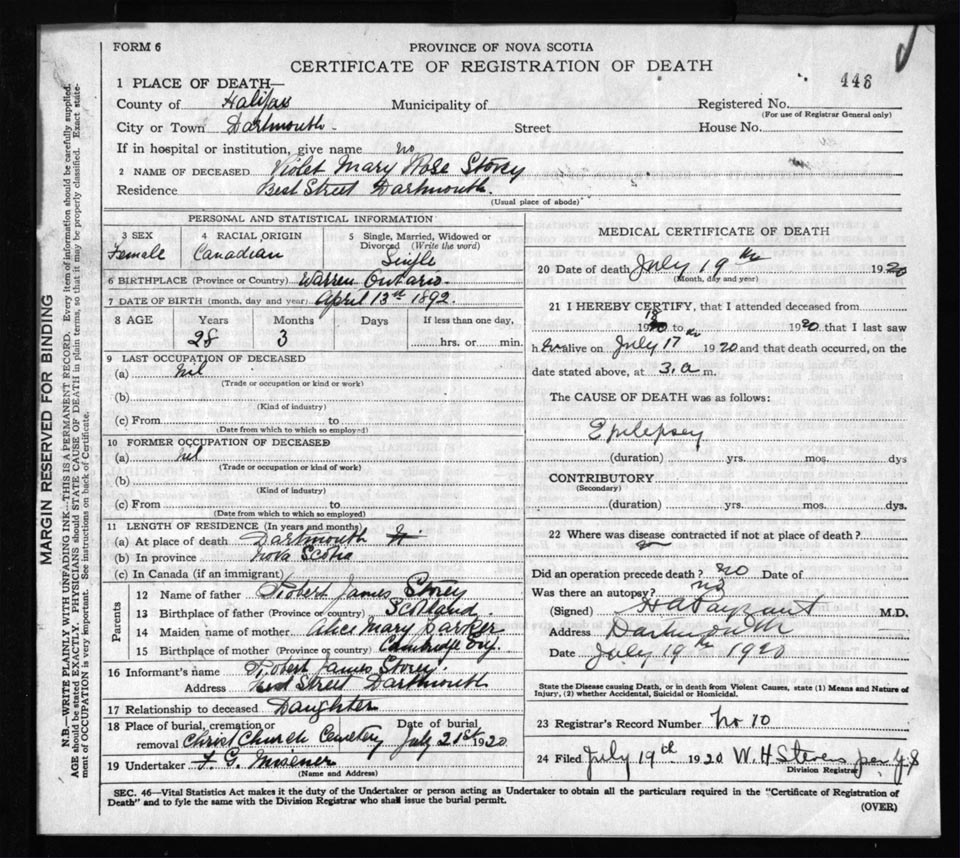 FORM 6
PROVINCE OF NOVA SCOTIA
CERTIFICATE OF REGISTRATION OF DEATH
446
MARGIN RESERVED FOR BINDING
N.B.—WRITE PLAINLY WITH UNFADING INK—THIS IS A PERMANENT RECORD. Every item of information should be carefully supplied.
AGE should be stated EXACTLY. PHYSICIANS should STATE CAUSE OF DEATH in plain terms, so that it may be properly classified. Exact state-
ment of OCCUPATION is very important. See instructions on back of Certificate.
1 PLACE OF DEATH—
County of Halifax Municipality of Registered No.
(For use of Registrar General only)
City or Town Dartmouth. Street House No.
If in hospital or institution, give name no
2 NAME OF DECEASED Violet Mary Rose Storey
Residence Best Street Dartmouth.
(Usual place of abode)
PERSONAL AND STATISTICAL INFORMATION
3 SEX 4 RACIAL ORIGIN 5 Single, Married, Widowed or Divorced (Write the word)
Female Canadian Single
6 BIRTHPLACE (Province or Country) Warren Ontario.
7 DATE OF BIRTH (month, day and year) April 13th 1892.
8 AGE Years Months Days If less than one day,
28 3 hrs. or min.
9 LAST OCCUPATION OF DECEASED
(a) nil
(Trade or occupation or kind or work)
(b)
(Kind of industry)
(c) From to
(Date from which to which so employed)
10 FORMER OCCUPATION OF DECEASED
(a) nil
(Trade or occupation or kind of work)
(b)
(Kind of industry)
(c) From to
(Date from which to which so employed)
11 LENGTH OF RESIDENCE (In years and months)
(a) At place of death Dartmouth
(b) In province Nova Scotia
(c) In Canada (if an immigrant)
Parents
12 Name of father Robert James Storey
13 Birthplace of father (Province or country) Scotland.
14 Maiden name of mother Alice Mary Parker
15 Birthplace of mother (Province or country) Cambridge Eng.
16 Informant's name Robert James Storey.
Address Best Street Dartmouth
17 Relationship to deceased Daughter
18 Place of burial, cremation or removal Christ Church Cemetery Date of burial July 21st 1920
19 Undertaker F. G. Misener
(Name and Address)
MEDICAL CERTIFICATE OF DEATH
20 Date of death July 19th 1920
(Month, day and year)
21 I HEREBY CERTIFY, that I attended deceased from
19 to 1920 that I last saw
her alive on July 17th 1920 and that death occurred, on the
date stated above, at 3. a m.
The CAUSE OF DEATH was as follows:
Epilepsey
(duration) yrs. mos. dys
CONTRIBUTORY
(Secondary)
(duration) yrs. mos. dys.
22 Where was disease contracted if not at place of death?
Did an operation precede death? no Date of
Was there an autopsy? no
(Signed) H A Payzant M.D.
Address Dartmouth
Date July 19th 1920
State the Disease causing Death, or in death from Violent Causes, state (1) Means and Nature of
Injury, (2) whether Accidental, Suicidal or Homicidal.
23 Registrar's Record Number No 10
24 Filed July 19th 1920 W. H Stevens per
Division Registrar
SEC. 46—Vital Statistics Act makes it the duty of the Undertaker or person acting as Undertaker to obtain all the particulars required in the "Certificate of Registration of
Death" and to fyle the same with the Division Registrar who shall issue the burial permit.
(OVER)